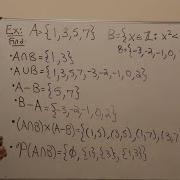 Ex: A={1,3,5,7} B={x∈ℤ: x²<
Find: B={-3,-2,-1,0,
• A∩B={1,3}
• A∪B={1,3,5,7,-3,-2,-1,0,2}
• A-B={5,7}
• B-A={-3,-2,-1,0,2}
• (A∩B)×(A-B)={(1,5),(1,7),(3,
• P(A∩B)={∅,{1},{3},{1,3}}